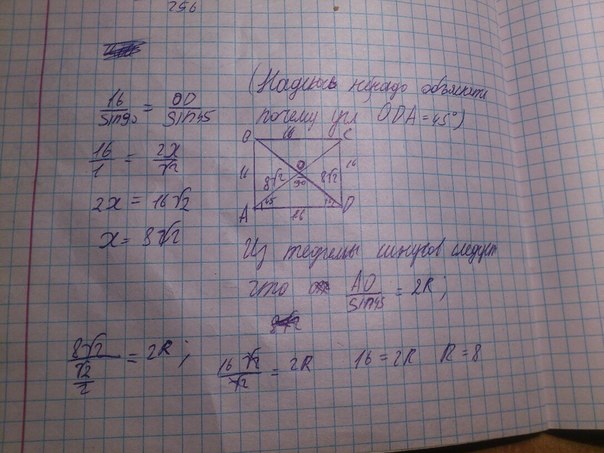 256
16/Sin90 = OD/Sin45
16/1 = 2x/√2
2x = 16√2
x = 8√2
(Надеюсь ненадо объяснять
почему угл ODA = 45°)
B 16 C
16 O 16
8√2 90 8√2
A 45 16 45 D
Из теоремы синусов следует
что AO/Sin45 = 2R;
8√2/(√2/2) = 2R; 16√2/√2 = 2R 16 = 2R R = 8